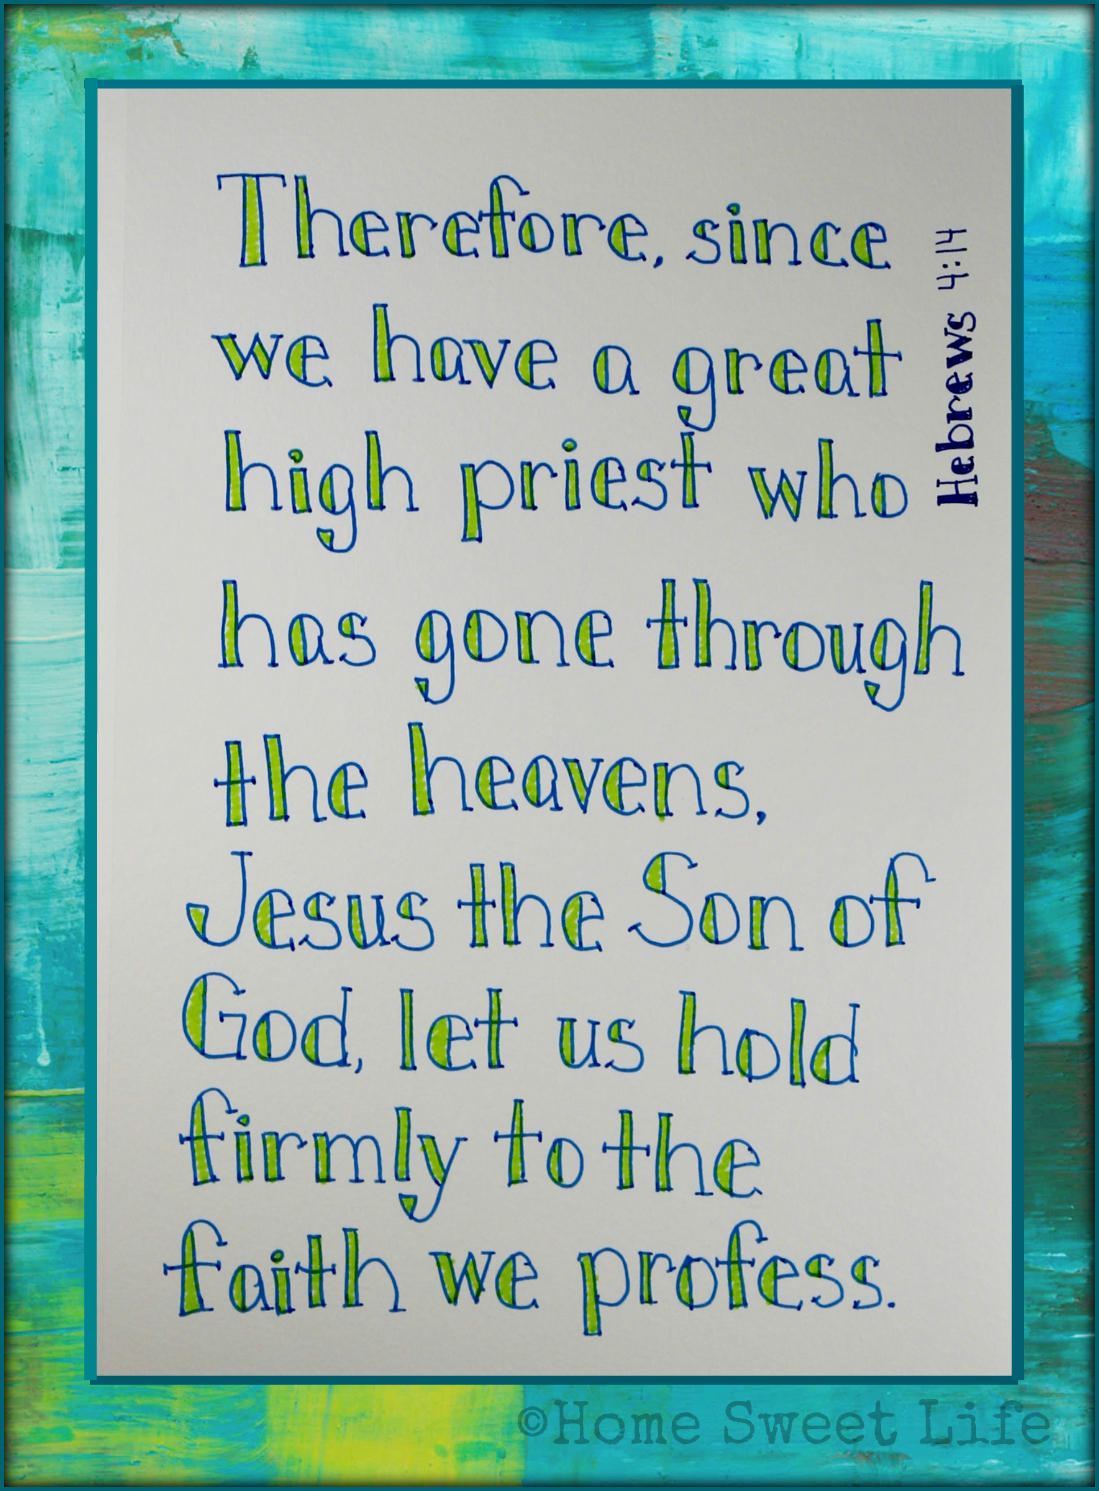 Therefore, since
we have a great
high priest who
has gone through
the heavens,
Jesus the Son of
God, let us hold
firmly to the
faith we profess.
Hebrews 4:14
©Home Sweet Life